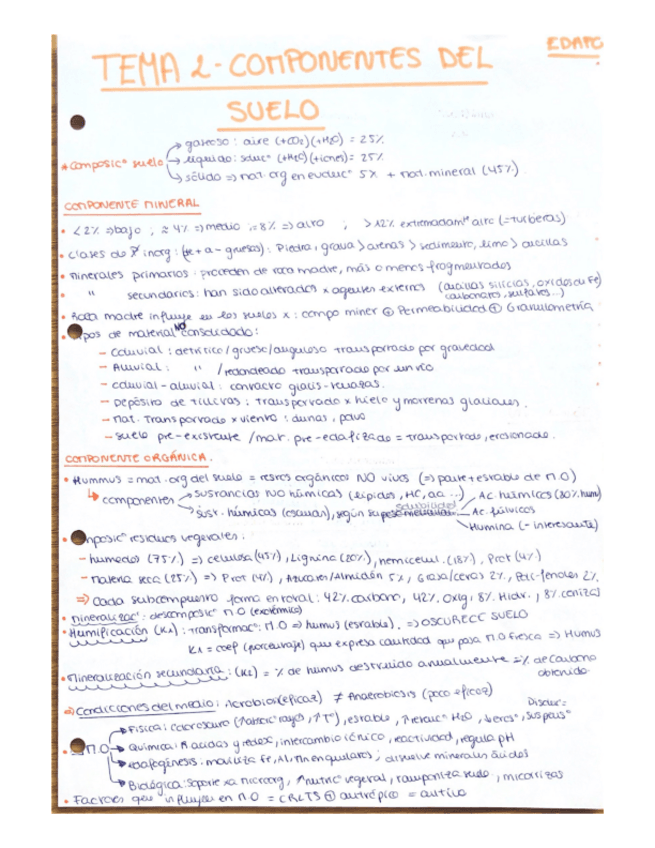 EDAFO
TEMA 2 - COMPONENTES DEL
SUELO
* Composic° suelo → gaseoso: aire (+CO2)(+H2O) = 25%
→ líquido: soluc° (+H2O)(+iones) = 25%
→ sólido => mat. org en evoluc° 5% + mat. mineral (45%)
COMPONENTE MINERAL
• <2% => bajo ; ≈ 4% => medio ≈ 8% => alto ; >12% extremadam° alto (= turberas)
• Clases de inorg: (de + a - gruesas): Piedra, grava > arenas > sedimento, limo > arcillas
• Minerales primarios: proceden de roca madre, más o menos fragmentados
• " secundarios: han sido alterados x agentes externos (arcillas silícias, óxidos de Fe)
carbonatos, sulfatos...)
• Roca madre influye en los suelos x: compo miner ⊕ Permeabilidad ⊕ Granulometría
• Tipos de material NO consolidado:
- Coluvial: detrítico/grueso/anguloso transportado por gravedad
- Aluvial: " /redondeado transportado por un río
- coluvial-aluvial: contacto glacis-terrazas.
- Depósito de tillitas: transportado x hielo y morrenas glaciares.
- Mat. transportado x viento: dunas, polvo
- suelo pre-existente / mat. pre-edafizado = transportado, erosionado.
COMPONENTE ORGÁNICA.
• Hummus = mat. org del suelo = restos orgánicos NO vivos (=> parte + estable de M.O)
↳ componentes → sustancias NO húmicas (lípidos, HC, aa ...)
→ Sust. húmicas (oscuran), según su solubilidad
Ac. húmicos (80% hum)
Ac. fúlvicos
Humina (- interesante)
• Composic° residuos vegetales:
- humedos (75%) => celulosa (45%), Lignina (20%), hemicelul. (18%), Prot (4%)
- materia seca (25%) => Prot (4%), Azucares/Almidón 5%, Grasa/ceras 2%, Poli-fenoles 2%
=> Cada subcompuesto forma en total: 42% carbono, 42% Oxig, 8% Hidr., 8% ceniza
• Mineralizac°: descomposic° M.O (exotérmica)
• Humificación (K1): transformac° M.O => humus (estable). => OSCURECE SUELO
K1 = coef (porcentaje) que expresa cantidad que pasa M.O fresca => Humus
• Mineralización secundaria: (K2) = % de humus destruido anualmente = % de Carbono
obtenido.
=> Condiciones del medio: Aerobiosis (eficaz) ≠ Anaerobiosis (poco eficaz)
• M.O → Física: color oscuro (↑ rayos, ↑T°), estable, ↑ retenc° H2O,
→ Química: R acidas y redox, intercambio iónico, reactividad, regula pH
→ edafogénesis: moviliza Fe, Al, Mn en quelatos; disuelve minerales ácidos
→ Biológica: soporte xa microorg, ↑nutric° vegetal, tampontiza suelo, micorrizas
• Factores que influyen en M.O = CRLTS ⊕ antrópico =